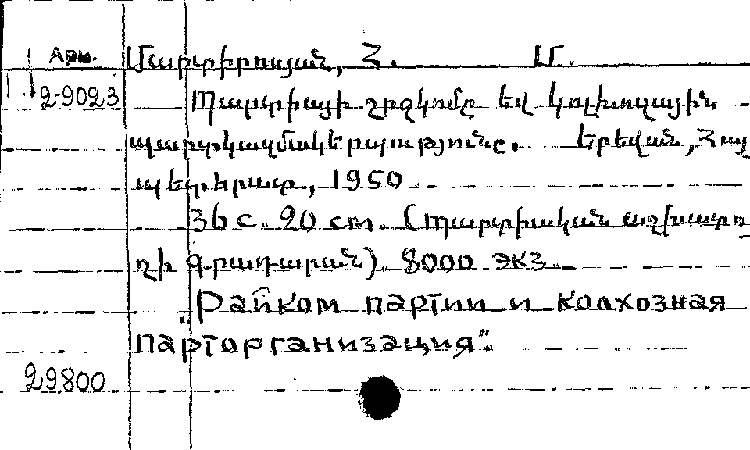 Арм.
Մարտիրոսյան, Հ. Մ.
2-9023
Պարտիայի շրջկոմը եվ կոլխոզային
պարտկազմակերպությունը. Երեվան, Հայ
պետհրատ, 1950
36 с. 20 см. (Պարտիական աշխատո
ղի գրադարան). 8000 экз.
„Райком партии и колхозная
парторганизация".
29800